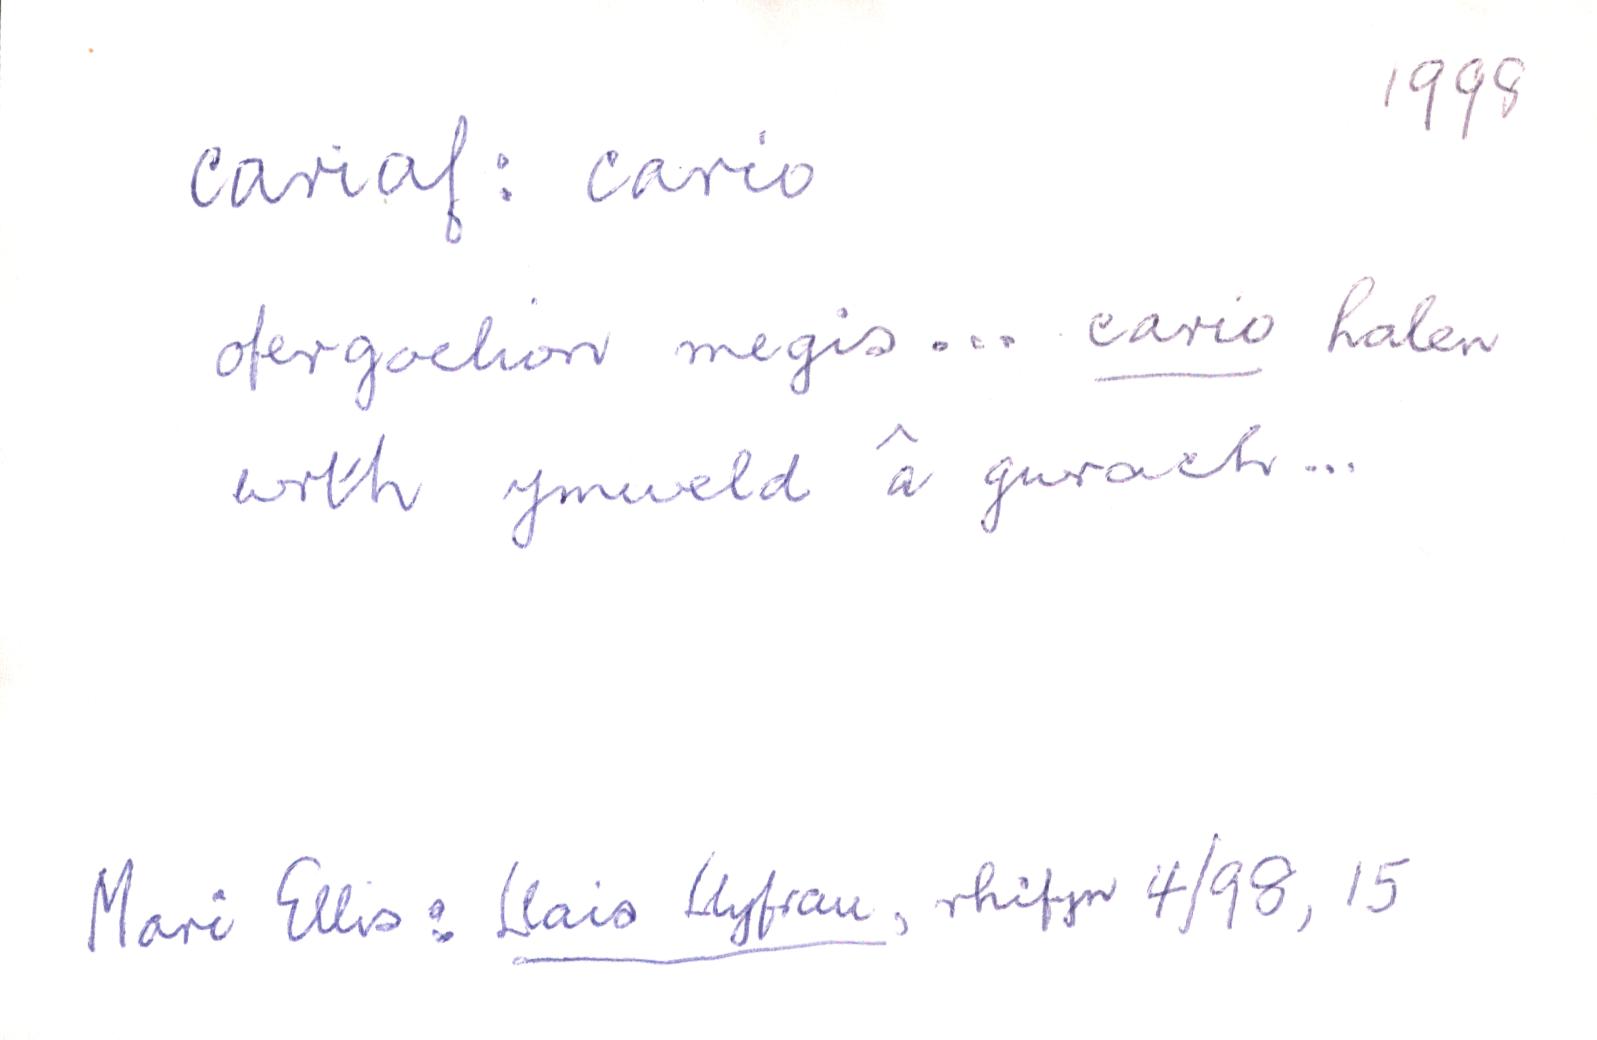 1998
cariaf: cario
ofergoelion megis ... cario halen
wrth ymweld â gwrach ...
Mari Ellis: Llais Llyfrau, rhifyn 4/98, 15